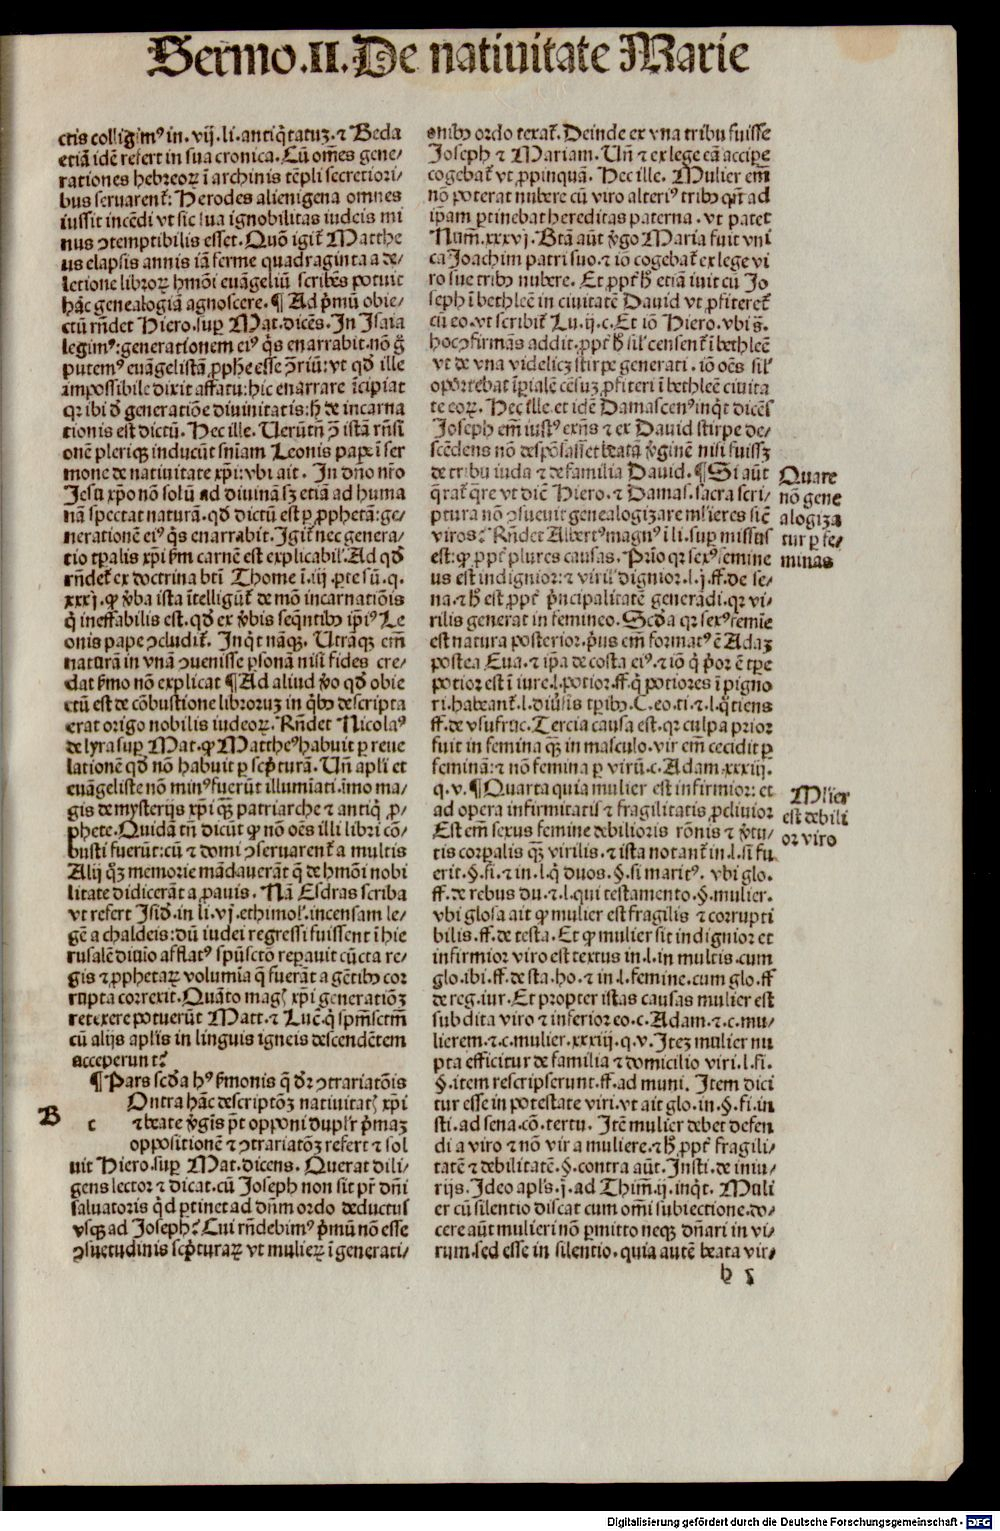 Sermo.II.De natiuitate Marie
ctis colligimꝰ in.vij.li.antiq̃tatuꝫ.⁊ Beda
etiã idẽ refert in sua cronica.Cũ om̃es gene⸗
rationes hebreoꝝ ĩ archinis tẽpli secretiori⸗
bus seruarent̃: Herodes alienigena omnes
iussit incẽdi vt sic sua ignobilitas iudeis mi
nus ꝯtemptibilis esset.Quõ igit̃ Matthe
us elapsis annis iã ferme quadraginta a de⸗
letione libroꝝ hmõi euãgeliũ scribẽs potuit
hãc genealogiã agnoscere.¶ Ad p̃mũ obie⸗
ctũ rñdet Hiero.suꝑ Mat.dicẽs.In Isaia
legimꝰ:generationem eiꝰ q̃s enarrabit.nõ g̃
putemꝰ euãgelistã ꝓphe esse ꝯ̃riũ:vt qd̓ ille
impossibile dixit affatu:hic enarrare ĩcipiat
qꝛ ibi d̓ generatiõe diuinitatis:h̓ de incarna
tionis est dictũ. Hec ille. Uerũtñ ꝯ̃ istã rñsi
onẽ pleriqꝫ inducũt sñiam Leonis pape ĩ ser
mone de natiuitate xp̃i:vbi ait. In dño nr̃o
Jesu xp̃o nõ solũ ad diuinã sꝫ etiã ad huma
nã spectat naturã.qd̓ dictũ est ꝑ ꝓphetã:ge⸗
nerationẽ eiꝰ q̃s enarrabit.Igit̃ nec genera⸗
tio tꝑalis xp̃i ẜm carnẽ est explicabil̓.Ad qd̓
rñdet̃ ex doctrina bt̃i Thome ĩ.iij.ꝑte sũ.q.
xxxj.ꝙ v̓ba ista ĩtelligũt̃ de mõ incarnatiõis
q̃ ineffabilis est.qd̓ ex v̓bis seq̃ntibꝰ ip̃iꝰ Le
onis pape ꝯcludit̃. Inq̃t nãqꝫ. Utrãqꝫ em̃
naturã in vnã ꝯuenisse ꝑsonã nisi fides cre⸗
dat ẜmo nõ explicat ¶Ad aliud v̓o qd̓ obie
ctũ est de cõbustione libroruꝫ in q̃bꝰ descripta
erat origo nobilis iudeoꝝ. Rñdet Nicolaꝰ
de lyra suꝑ Mat.ꝙ Mattheꝰ habuit ꝑ reue
lationẽ qd̓ nõ habuit ꝑ sc̃pturã. Uñ apl̃i et
euãgeliste nõ minꝰ fuerũt illumiati.imo ma⸗
gis de mysterijs xp̃i qꝫ̃ patriarche ⁊ antiq̃ ꝓ⸗
phete.Quidã tñ dicũt ꝙ nõ oẽs illi libri cõ⸗
busti fuerũt:cũ ⁊ domi ꝯseruarent̃ a multis
Alij qꝫ̓ memorie mãdauerãt q̃ de hmõi nobi
litate didicerãt a ꝓauis. Nã Esdras scriba
vt refert Isid̓.in li.vj.ethimol̓.incensam le⸗
gẽ a chaldeis:dũ iudei regressi fuissent ĩ hie
rusalẽ diuio afflatꝰ spũsctõ reꝑauit cũcta re⸗
gis ⁊ ꝓphetaꝝ volumĩa q̃ fuerãt a gẽtibꝰ cor
rupta correxit.Quãto mag̓ xp̃i generatiõꝫ
retexere potuerũt Matt.⁊ Lucẽ q̃ spm̃sctm̃
cũ alijs apl̃is in linguis igneis descendẽtem
acceperunt?
¶Pars scd̓a hꝰ ẜmonis q̃ dꝛ ꝯtrariatõis
B
c Ontra hãc descriptõꝫ natiuitat̓ xp̃i
⁊ beate v̓gĩs p̃t opponi dupl̓r p̃maꝫ
oppositionẽ ⁊ ꝯtrariatõꝫ refert ⁊ sol
uit Hiero.suꝑ Mat.dicens. Querat dili⸗
gens lector ⁊ dicat.cũ Joseph non sit pr̃ dñi
saluatoris q̃d ꝑtinet ad dñm ordo deductus
vsqꝫ ad Joseph? Cui rñdebimꝰ p̃mũ nõ esse
ꝯsuetudinis sc̃pturaꝝ vt mulieꝝ ĩ generati⸗
onibꝰ ordo texat̃.Deinde ex vna tribu fuisse
Joseph ⁊ Mariam.Uñ ⁊ ex lege eã accipe
cogebat̃ vt ꝓpinquã. Hec ille. Mulier em̃
nõ poterat nubere cũ viro alteriꝰ tribꝰ qñ ad
ip̃am ꝑtinebat hereditas paterna.vt patet
Num̃.xxxvj.Btã aũt v̓go Maria fuit vni
ca Joachim patri suo.⁊ iõ cogebat̃ ex lege vi
ro sue tribꝰ nubere. Et ꝓpt̃ h̓ etiã iuit cũ Jo
seph ĩ bethleẽ in ciuitatẽ Dauid vt ꝓfiteret̃
cũ eo.vt scribit̃ Lu.ij.c.Et iõ Hiero.vbi s̃.
hoc ꝯfirmans addit.ꝓpt̃ h̓ sil̓ censent̃ ĩ bethleẽ
vt de vna videlicꝫ stirpe generati.iõ oẽs sil̓
oportebat ĩꝑialẽ cẽsuꝫ ꝓfiteri ĩ bethleẽ ciuita
te eoꝝ. Hec ille.et idẽ Damascenꝰ inq̃t dicẽs
Joseph em̃ iustꝰ exñs ⁊ ex Dauid stirpe de⸗
scẽdens nõ despõsasset beatã v̓ginẽ nisi fuissꝫ
de tribu iuda ⁊ de familia Dauid.¶Si aũt
q̃rat̃ q̃re vt dicit Hiero.⁊ Damas.sacra scri⸗
ptura nõ ꝯsueuit genealogizare ml̓ieres sicẽ
viros? Rñdet Albertꝰ magnꝰ ĩ li.suꝑ missus
est:ꝙ ꝓpt̃ plures causas. Prĩo qꝛ sexꝰ femine
us est indignior:⁊ viril̓ dignior.l.j.ff.de se⸗
na.⁊ h̓ est ꝓpt̃ p̃ncipalitatẽ generãdi.qꝛ vi⸗
rilis generat in femineo.Scd̓a qꝛ sexꝰ femie
est natura posterior.p̃us em̃ formatꝰ ẽ Adaꝫ
postea Eua.⁊ ip̃a de costa eiꝰ.⁊ iõ q̃ p̃or ẽ tꝑe
potior est ĩ iure.l.potior.ff.q̃ potiores ĩ pigno
ri.habeant̃.l.diũsis tꝑibꝰ.C.eo.ti.⁊ l.q̃tiens
ff.de vsufruc.Tercia causa est.qꝛ culpa prior
fuit in femina qꝫ̃ in masculo.vir em̃ cecidit ꝑ
feminã:⁊ nõ femina ꝑ virũ.c.Adam.xxxiij.
q.v.¶Quarta quia mulier est infirmior:et
ad opera infirmitatis ⁊ fragilitatis ꝓcliuior
Est em̃ sexus femine debilioris rõnis ⁊ v̓tu⸗
tis corꝑalis qꝫ̃ virilis.⁊ ista notant̃ in.l.si fu
erit.§.fi.⁊ in.l.q̃ duos.§.si maritꝰ. vbi glo.
ff.de rebus du.⁊ l.qui testamento.§.mulier.
vbi glosa ait ꝙ mulier est fragilis ⁊ corrupti
bilis.ff.de testa.Et ꝙ mulier sit indignior et
infirmior viro est textus in.l.in multis.cum
glo.ibi.ff.de sta.ho.⁊ in l.femine.cum glo.ff
de reg.iur.Et propter istas causas mulier est
subdita viro ⁊ inferior eo.c.Adam.⁊.c.mu⸗
lierem.⁊.c.mulier.xxxiij.q.v.Iteꝫ mulier nu
pta efficitur de familia ⁊ domicilio viri.l.fi.
§.item rescripserunt.ff.ad muni. Item dici
tur esse in potestate viri.vt ait glo.in.§.fi.in
sti.ad sena.cõ.tertu. Itẽ mulier debet defen
di a viro ⁊ nõ vir a muliere.⁊ h̓ ꝓpt̃ fragili⸗
tatẽ ⁊ debilitatẽ.§.contra aũt.Insti.de iniu⸗
rijs.Ideo apl̃s.j.ad Thim̃.ij.inq̃t. Muli
er cũ silentio discat cum om̃i subiectione.do⸗
cere aũt mulieri nõ ꝑmitto neqꝫ dñari in vi⸗
rum.sed esse in silentio.quia autẽ beata vir⸗
Quare
nõ gene
alogiza
tur ꝑ fe⸗
minas
Ml̓ier
est debili
or viro